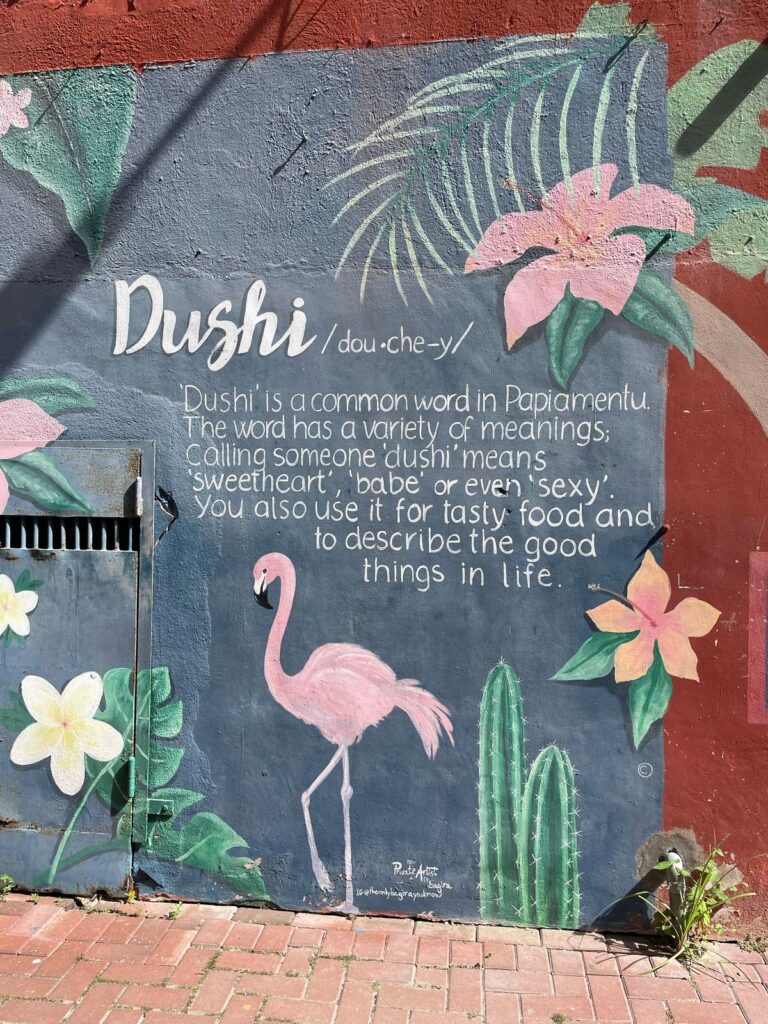 Dushi /dou•che-y/
'Dushi' is a common word in Papiamentu.
The word has a variety of meanings;
Calling someone 'dushi' means
'sweetheart', 'babe' or even 'sexy'.
You also use it for tasty food and
to describe the good
things in life.
©
Private Artist
bagira
IG@theonlybagirayouknow